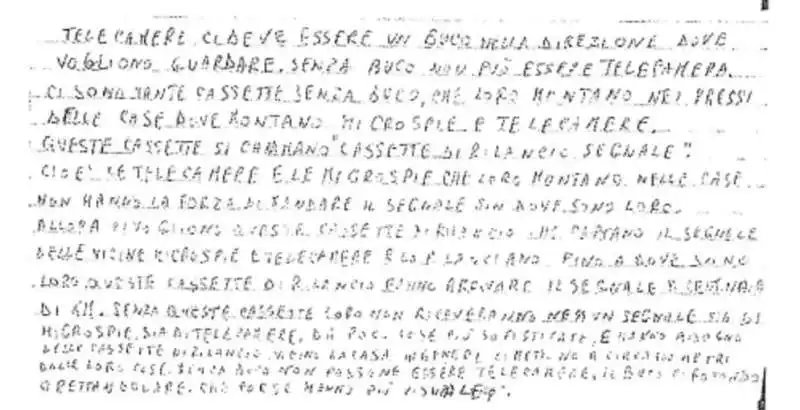 TELECAMERE CI DEVE ESSERE UN BUCO NELLA DIREZIONE DOVE
VOGLIONO GUARDARE. SENZA BUCO NON PIÒ ESSERE TELECAMERA.
CI SONO TANTE CASSETTE SENZA BUCO, CHE LORO MONTANO NEI PRESSI
DELLE CASE DOVE MONTANO MICROSPIE E TELECAMERE.
QUESTE CASSETTE SI CHIAMANO "CASSETTE DI RILANCIO SEGNALE".
CIOE' LE TELECAMERE E LE MICROSPIE CHE LORO MONTANO NELLE CASE
NON HANNO LA FORZA DI MANDARE IL SEGNALE SIN DOVE SONO LORO.
ALLORA CI VOGLIONO QUESTE CASSETTE DI RILANCIO CHE IL SEGNALE
DELLE VICINE MICROSPIE E TELECAMERE E LO RILANCIANO FINO A DOVE SONO
LORO. QUESTE CASSETTE DI RILANCIO FANNO ARRIVARE IL SEGNALE A
DI KM. SENZA QUESTE CASSETTE LORO NON RICEVERANNO NESSUN SEGNALE SIA DI
MICROSPIE, SIA DI TELECAMERE, DA COSE PIÙ SOFISTICATE, E HANNO BISOGNO
DELLE CASSETTE DI RILANCIO VICINO LA CASA IN GENERE METRI
DALLE LORO COSE. SENZA BUCO NON POSSONO ESSERE TELECAMERE, IL BUCO È ROTONDO
O RETTANGOLARE. CHE FORSE HANNO PIÙ VISUALE